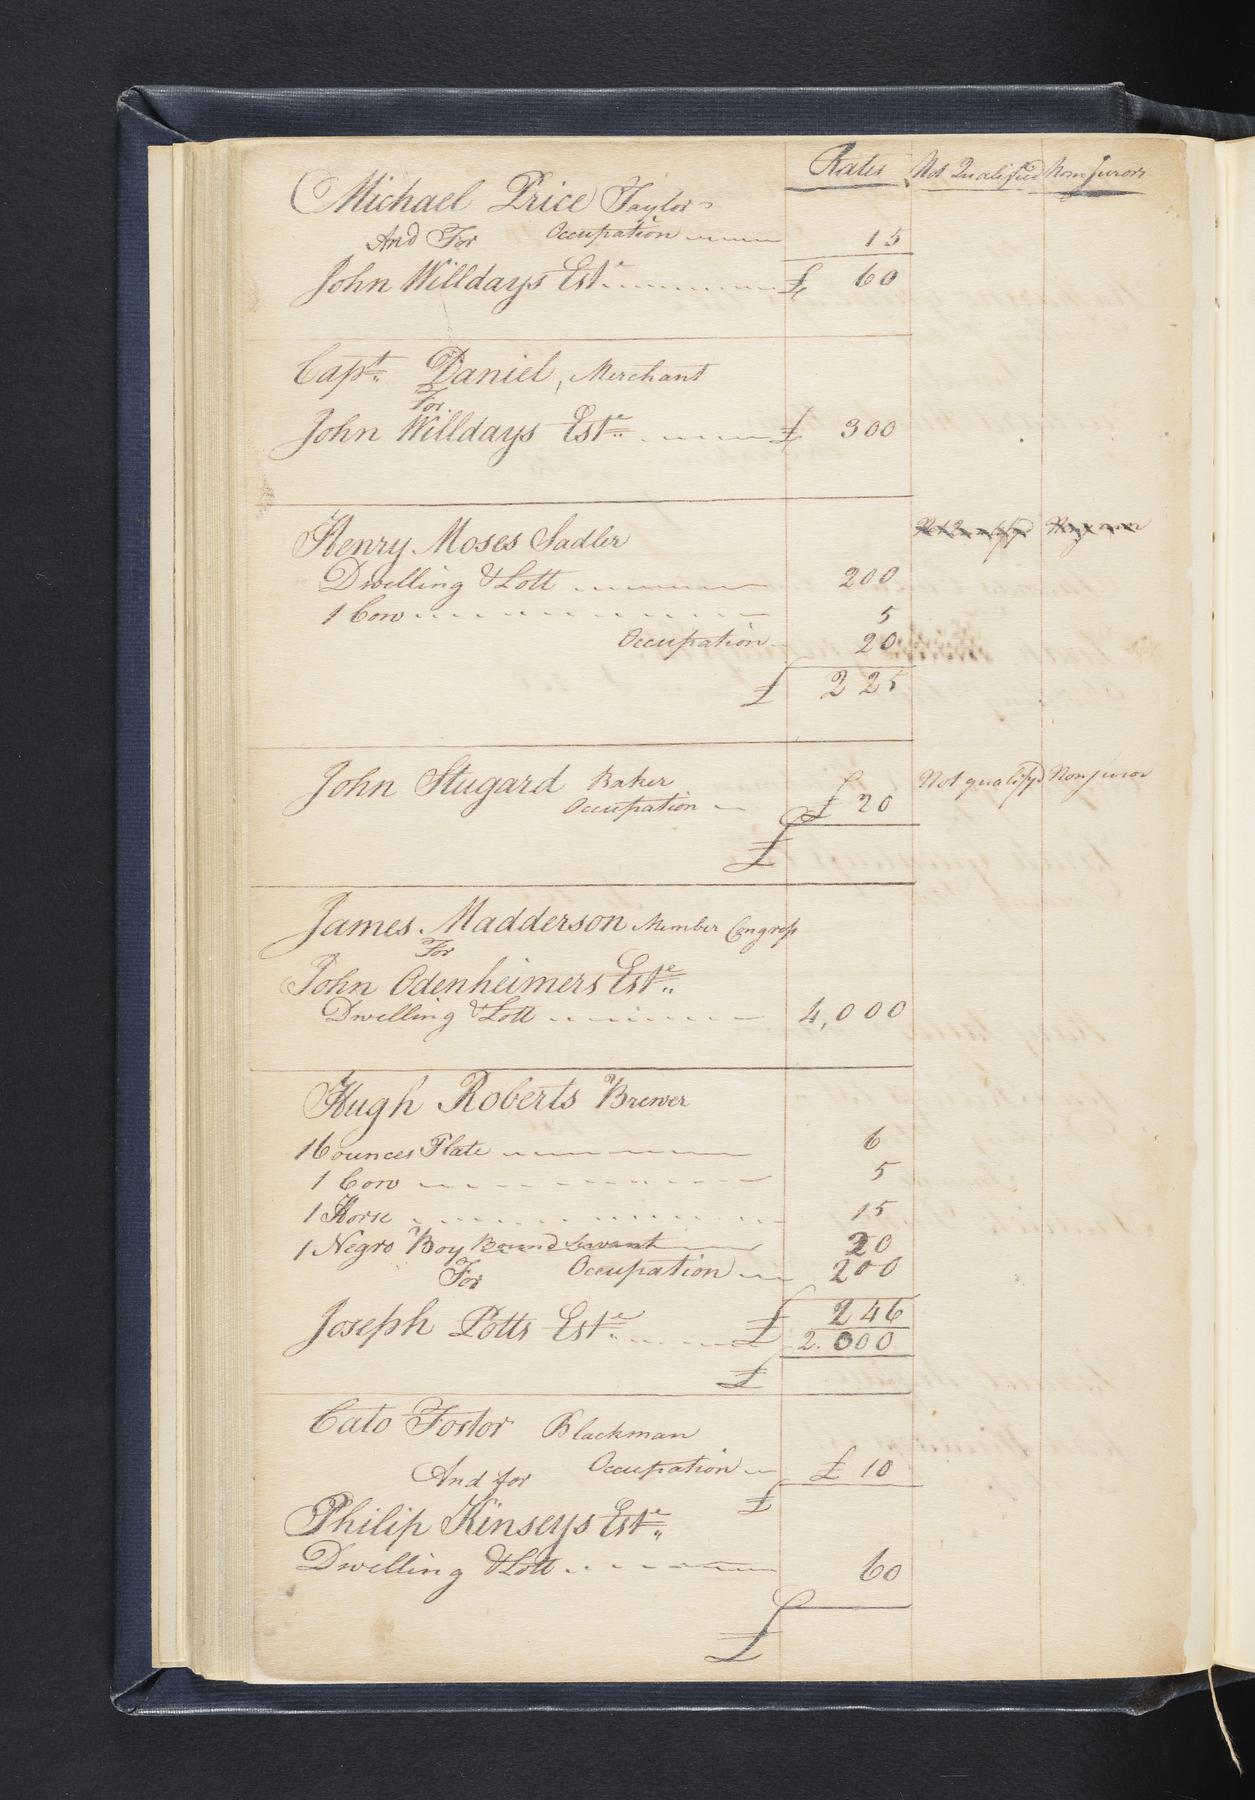 Rates Not Qualified Nonjurors
Michael Price Taylor
And For Occupation 15
John Willdays Este £ 60
Capt. Daniel, Merchant
For
John Willdays Este £ 300
Henry Moses Sadler
Dwelling & Lott 200
1 Cow 5
Occupation 20
£ 225
John Stugard Baker Not qualifyd Nonjuror
Occupation £ 20
£
James Madderson Member Congress
For
John Odenheimers Este
Dwelling & Lott 4,000
Hugh Roberts Brewer
16 ounces Plate 6
1 Cow 5
1 Horse 15
1 Negro Boy Bound Servant 20
For Occupation 200
£ 246
Joseph Potts Este 2.000
£
Cato Fostor Blackman
Occupation £ 10
And for £
Philip Kinseys Este
Dwelling & Lott 60
£